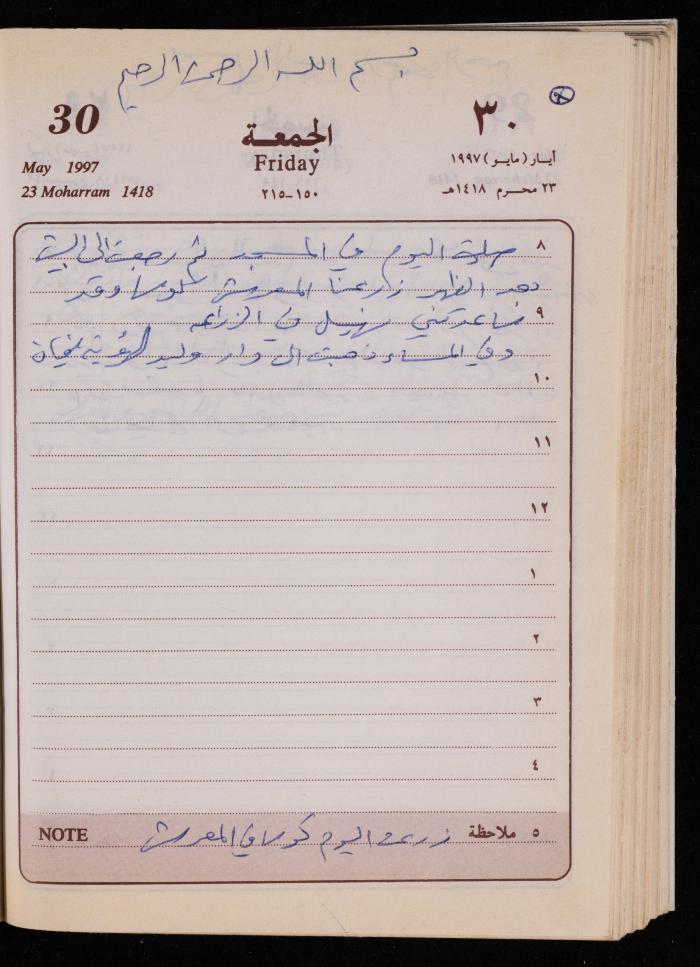 بسم الله الرحمن الرحيم
30 الجمعة ٣٠
Friday
May 1997 أيار (مايو) ١٩٩٧
23 Moharram 1418 ١٥٠-٢١٥ ٢٣ محرم ١٤١٨هـ
٨ صليت اليوم في المسجد ثم رجعت الى البيت
بعد الظهر زرعنا المعرش كوسا وقد
٩ ساعدتني في الزراعه
وفي المساء ذهبت الى دار وليد لرؤية
١٠
١١
١٢
١
٢
٣
٤
NOTE ٥ ملاحظة زرعت اليوم كوسا في المعرش